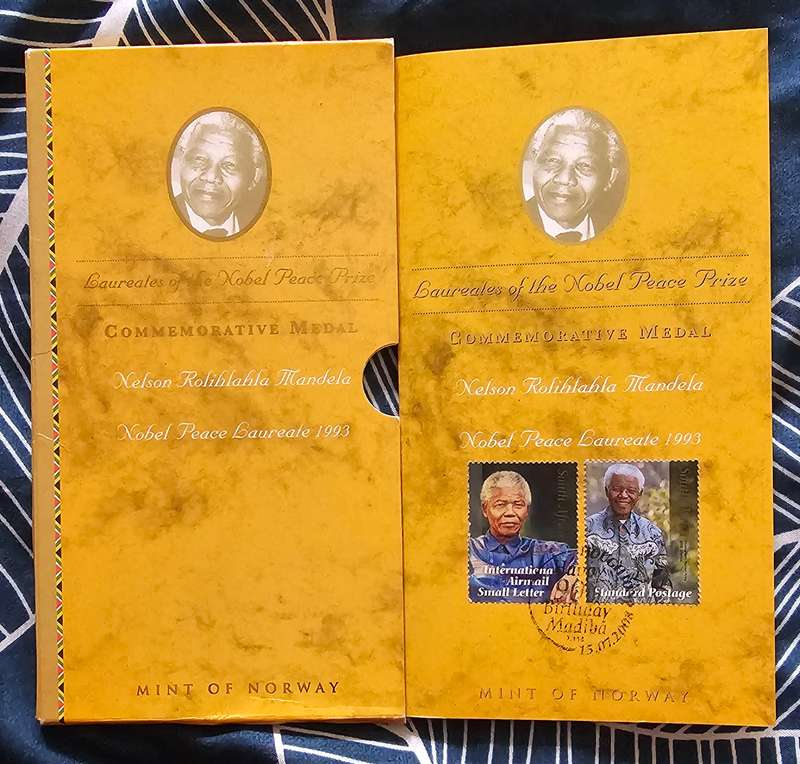 Laureates of the Nobel Peace Prize
COMMEMORATIVE MEDAL
Nelson Rolihlahla Mandela
Nobel Peace Laureate 1993
MINT OF NORWAY
Laureates of the Nobel Peace Prize
COMMEMORATIVE MEDAL
Nelson Rolihlahla Mandela
Nobel Peace Laureate 1993
International
Airmail
Small Letter
South
Standard Postage
Birthday
Madiba
15.07.2008
MINT OF NORWAY